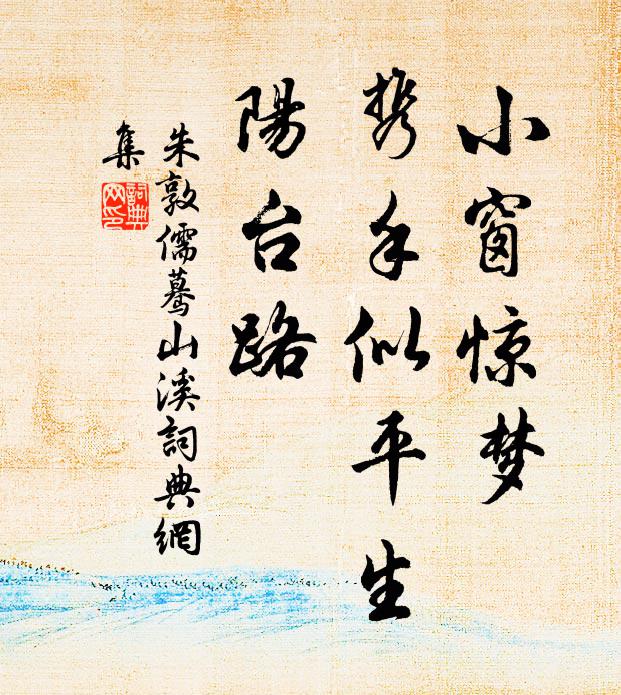 小窗惊梦
携手似平生
陽台路
朱敦儒驀山溪詞典網
集
詞典
网印